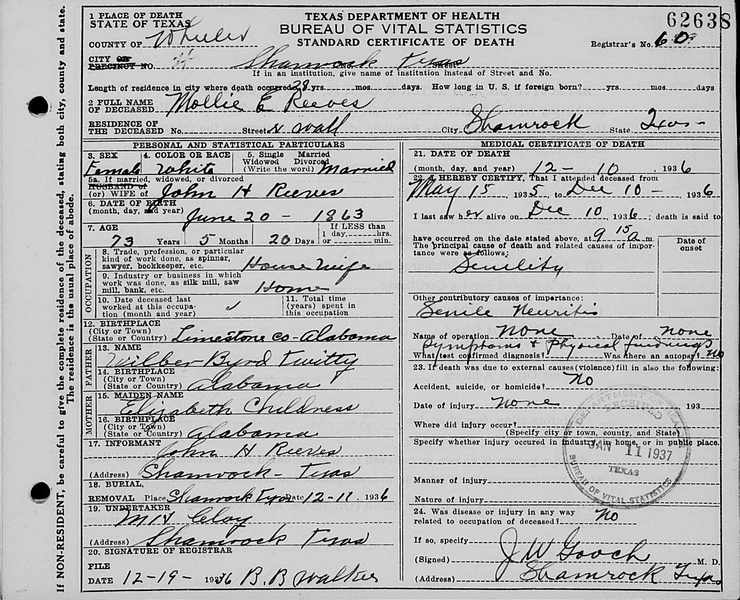 1 PLACE OF DEATH
STATE OF TEXAS
COUNTY OF Wheeler
TEXAS DEPARTMENT OF HEALTH
BUREAU OF VITAL STATISTICS
STANDARD CERTIFICATE OF DEATH
62638
Registrar's No. 60
CITY OR
PRECINCT NO. Shamrock Texas
If in an institution, give name of institution instead of Street and No.
Length of residence in city where death occurred 28 yrs. mos. days. How long in U. S. if foreign born? yrs. mos. days
2 FULL NAME
OF DECEASED Mollie E Reeves
RESIDENCE OF
THE DECEASED No. Street N Wall City Shamrock State Texas
PERSONAL AND STATISTICAL PARTICULARS
3. SEX Female
4. COLOR OR RACE White
5. Single Married
Widowed Divorced
(Write the word) Married
5a. If married, widowed, or divorced
HUSBAND of
(or) WIFE OF John H Reeves
6. DATE OF BIRTH
(month, day, and year) June 20 - 1863
7. AGE
73 Years 5 Months 20 Days
If LESS than
1 day, hrs.
or min.
OCCUPATION
8. Trade, profession, or particular
kind of work done, as spinner,
sawyer, bookkeeper, etc. House Wife
9. Industry or business in which
work was done, as silk mill, saw
mill, bank, etc. Home
10. Date deceased last
worked at this occupa-
tion (month and year)
11. Total time
(years) spent in
this occupation
12. BIRTHPLACE
(City or Town)
(State or Country) Limestone Co - Alabama
FATHER
13. NAME
Wilber Byrd Twitty
14. BIRTHPLACE
(City or Town)
(State or Country) Alabama
MOTHER
15. MAIDEN NAME
Elizabeth Childress
16. BIRTHPLACE
(City or Town)
(State or Country) Alabama
17. INFORMANT John H Reeves
(Address) Shamrock - Texas
18. BURIAL
REMOVAL Place Shamrock Texas Date 12-11, 1936
19. UNDERTAKER
M H Clay
(Address) Shamrock Texas
20. SIGNATURE OF REGISTRAR
FILE
DATE 12-19- 1936 B. B Walker
MEDICAL CERTIFICATE OF DEATH
21. DATE OF DEATH
(month, day, and year) 12-10, 1936
22. I HEREBY CERTIFY, That I attended deceased from
May 15 1935 to Dec 10- 1936
I last saw her alive on Dec 10 1936; death is said to
have occurred on the date stated above, at 9 15 a m.
The principal cause of death and related causes of impor-
tance were as follows:
Date of
onset
Senility
Other contributory causes of importance:
Senile Neuritis
Name of operation None Date of None
Symptoms & Physical findings
What test confirmed diagnosis? Was there an autopsy? No
23. If death was due to external causes (violence) fill in also the following:
Accident, suicide, or homicide? No
Date of injury None 193
Where did injury occur?
(Specify city or town, county, and State)
Specify whether injury occurred in industry, in home, or in public place.
Manner of injury
Nature of injury
24. Was disease or injury in any way
related to occupation of deceased? No
If so, specify
(Signed) J W Gooch M. D.
(Address) Shamrock Texas
RECEIVED
JAN 11 1937
TEXAS
BUREAU OF VITAL STATISTICS
If NON-RESIDENT, be careful to give the complete residence of the deceased, stating both city, county and state.
The residence is the usual place of abode.